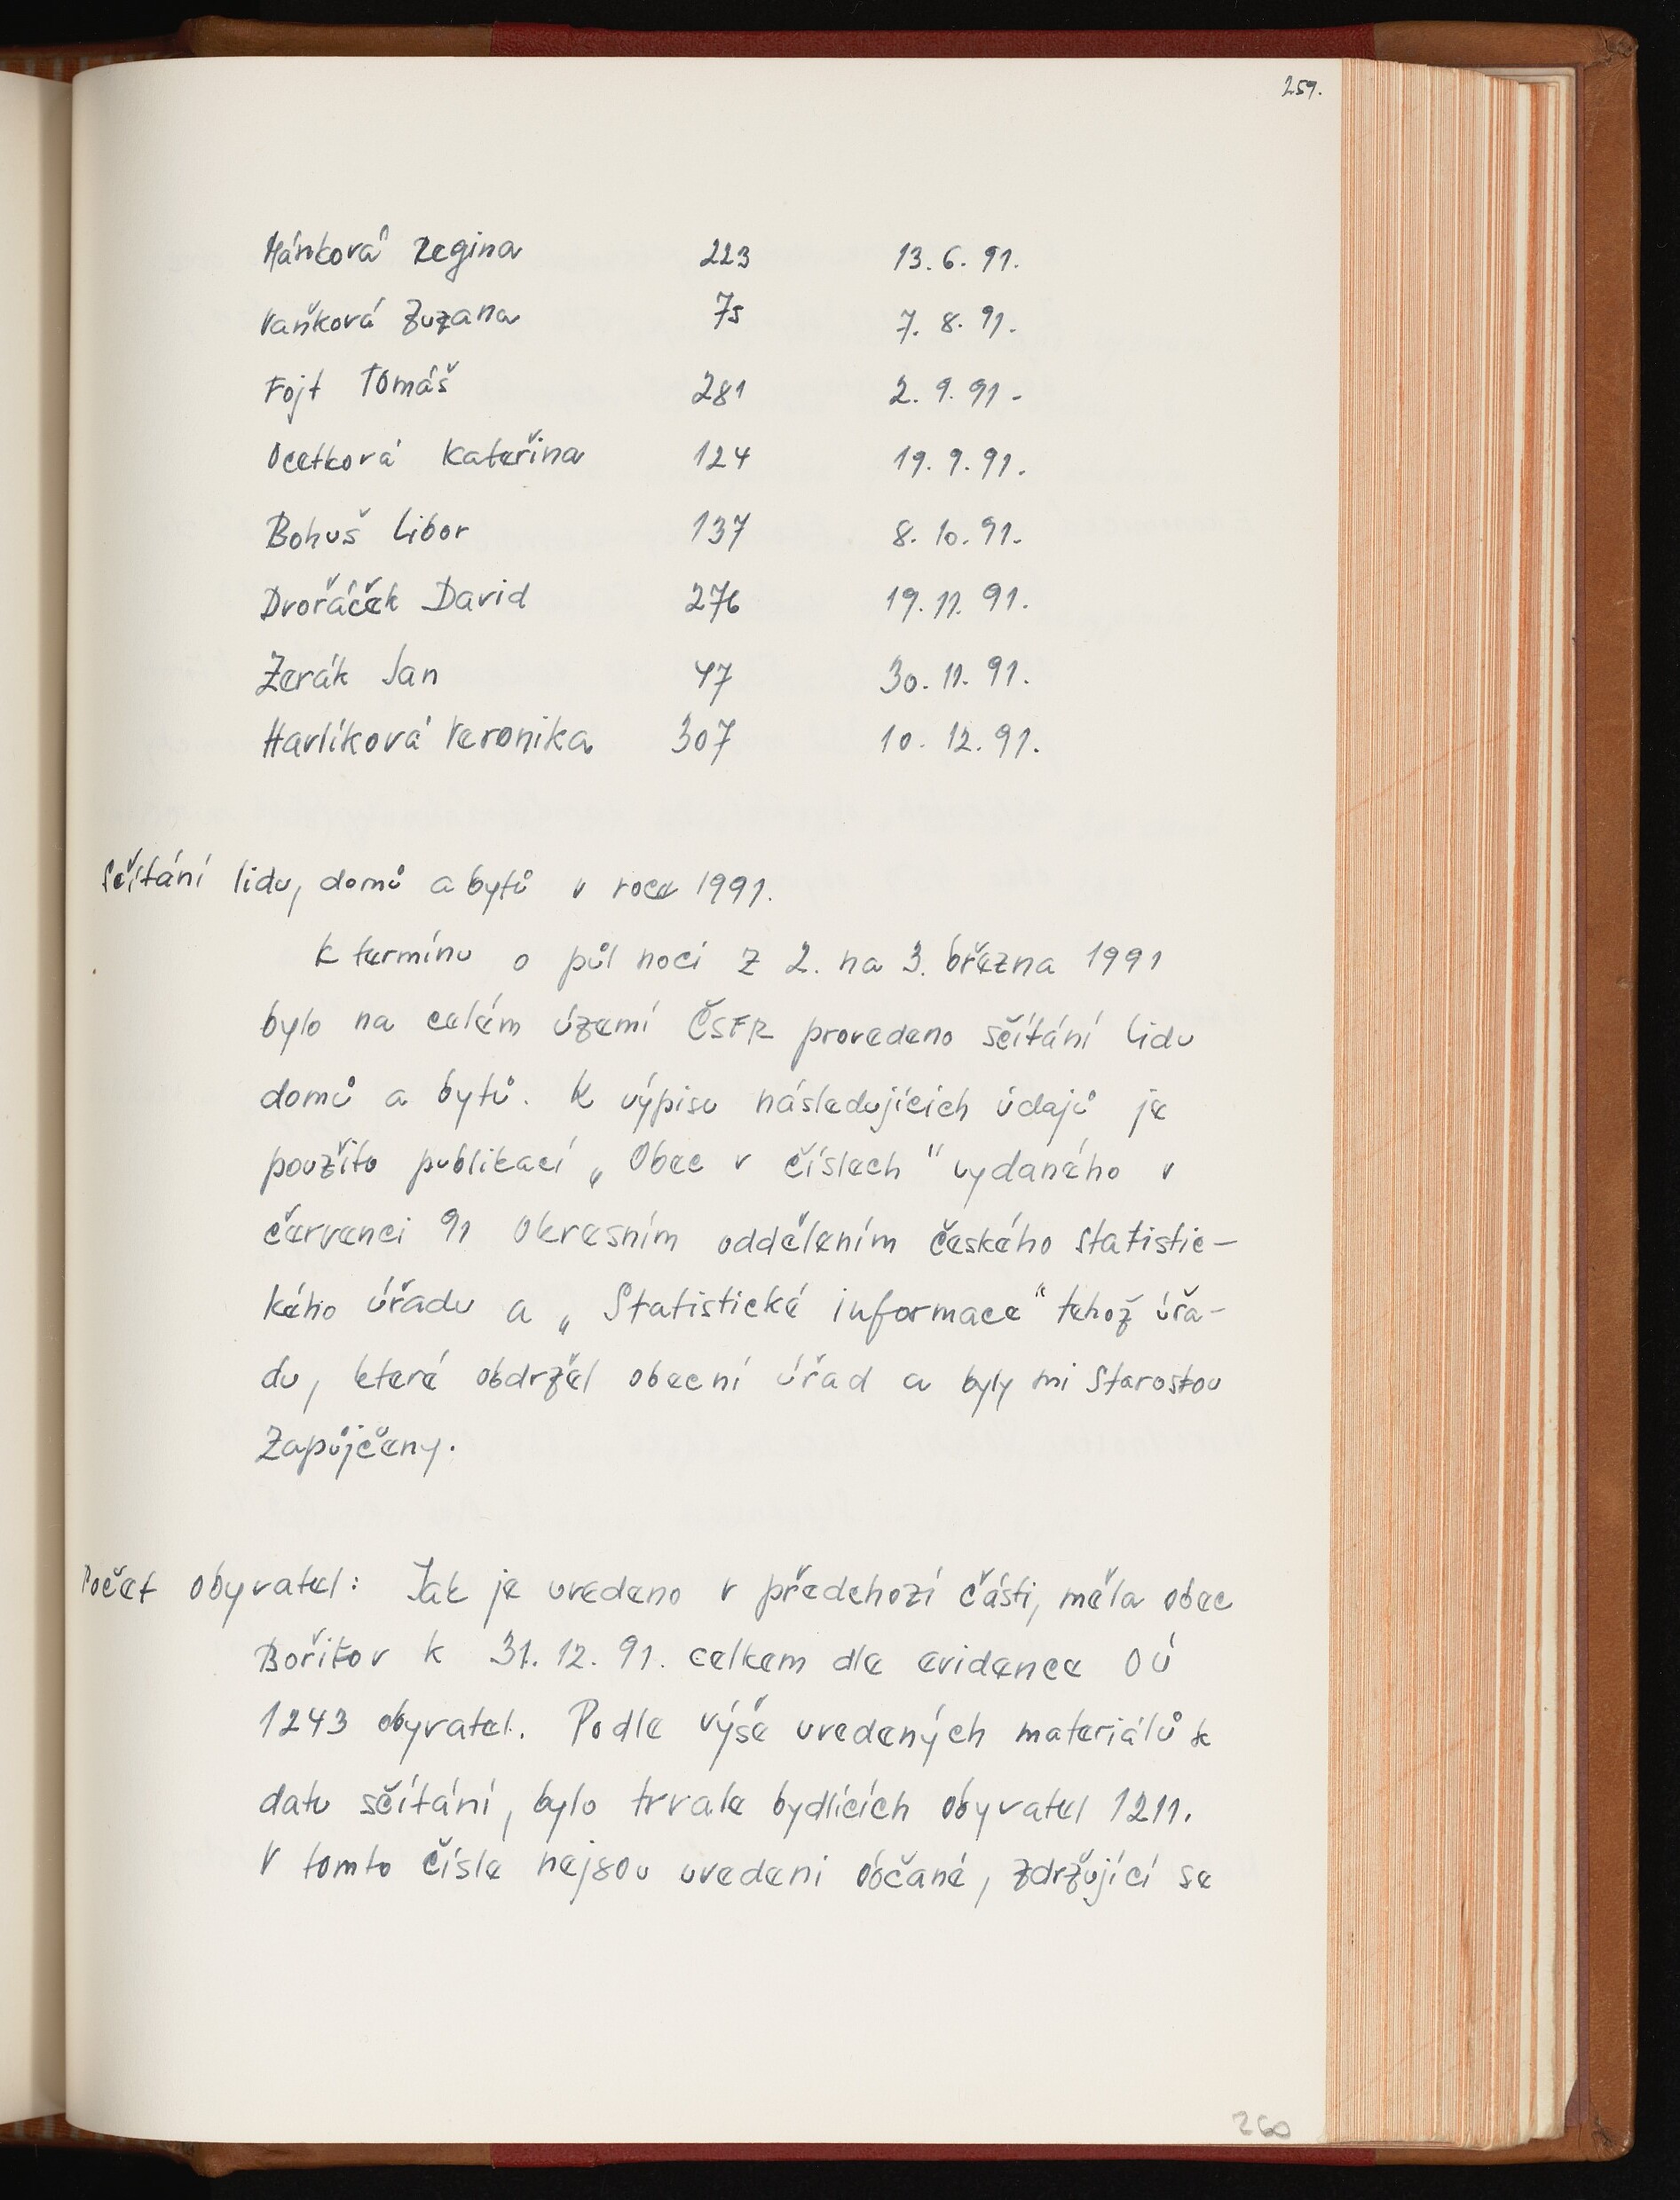 259.
Hánková Regina 223 13. 6. 91.
Vaňková Zuzana 75 7. 8. 91.
Fojt Tomáš 281 2. 9. 91.
Ocetková Kateřina 124 19. 9. 91.
Bohuš Libor 137 8. 10. 91.
Dvořáček David 276 19. 11. 91.
Zerák Jan 47 30. 11. 91.
Harlíková Veronika 307 10. 12. 91.
Sčítání lidu, domů a bytů v roce 1991.
K termínu o půl noci z 2. na 3. března 1991
bylo na celém území ČSFR provedeno sčítání lidu
domů a bytů. K výpisu následujících údajů je
použito publikací „Obec v číslech" vydaného v
červenci 91 Okresním oddělením českého statistic-
kého úřadu a „Statistické informace" tehož úřa-
du, které obdržel obecní úřad a byly mi starostou
zapůjčeny.
Počet obyvatel: Jak je uvedeno v předchozí části, měla obec
Bořitov k 31. 12. 91. celkem dle evidence OÚ
1243 obyvatel. Podle výše uvedených materiálů k
datu sčítání, bylo trvale bydlících obyvatel 1211.
V tomto čísle nejsou uvedeni občané, zdržující se
260